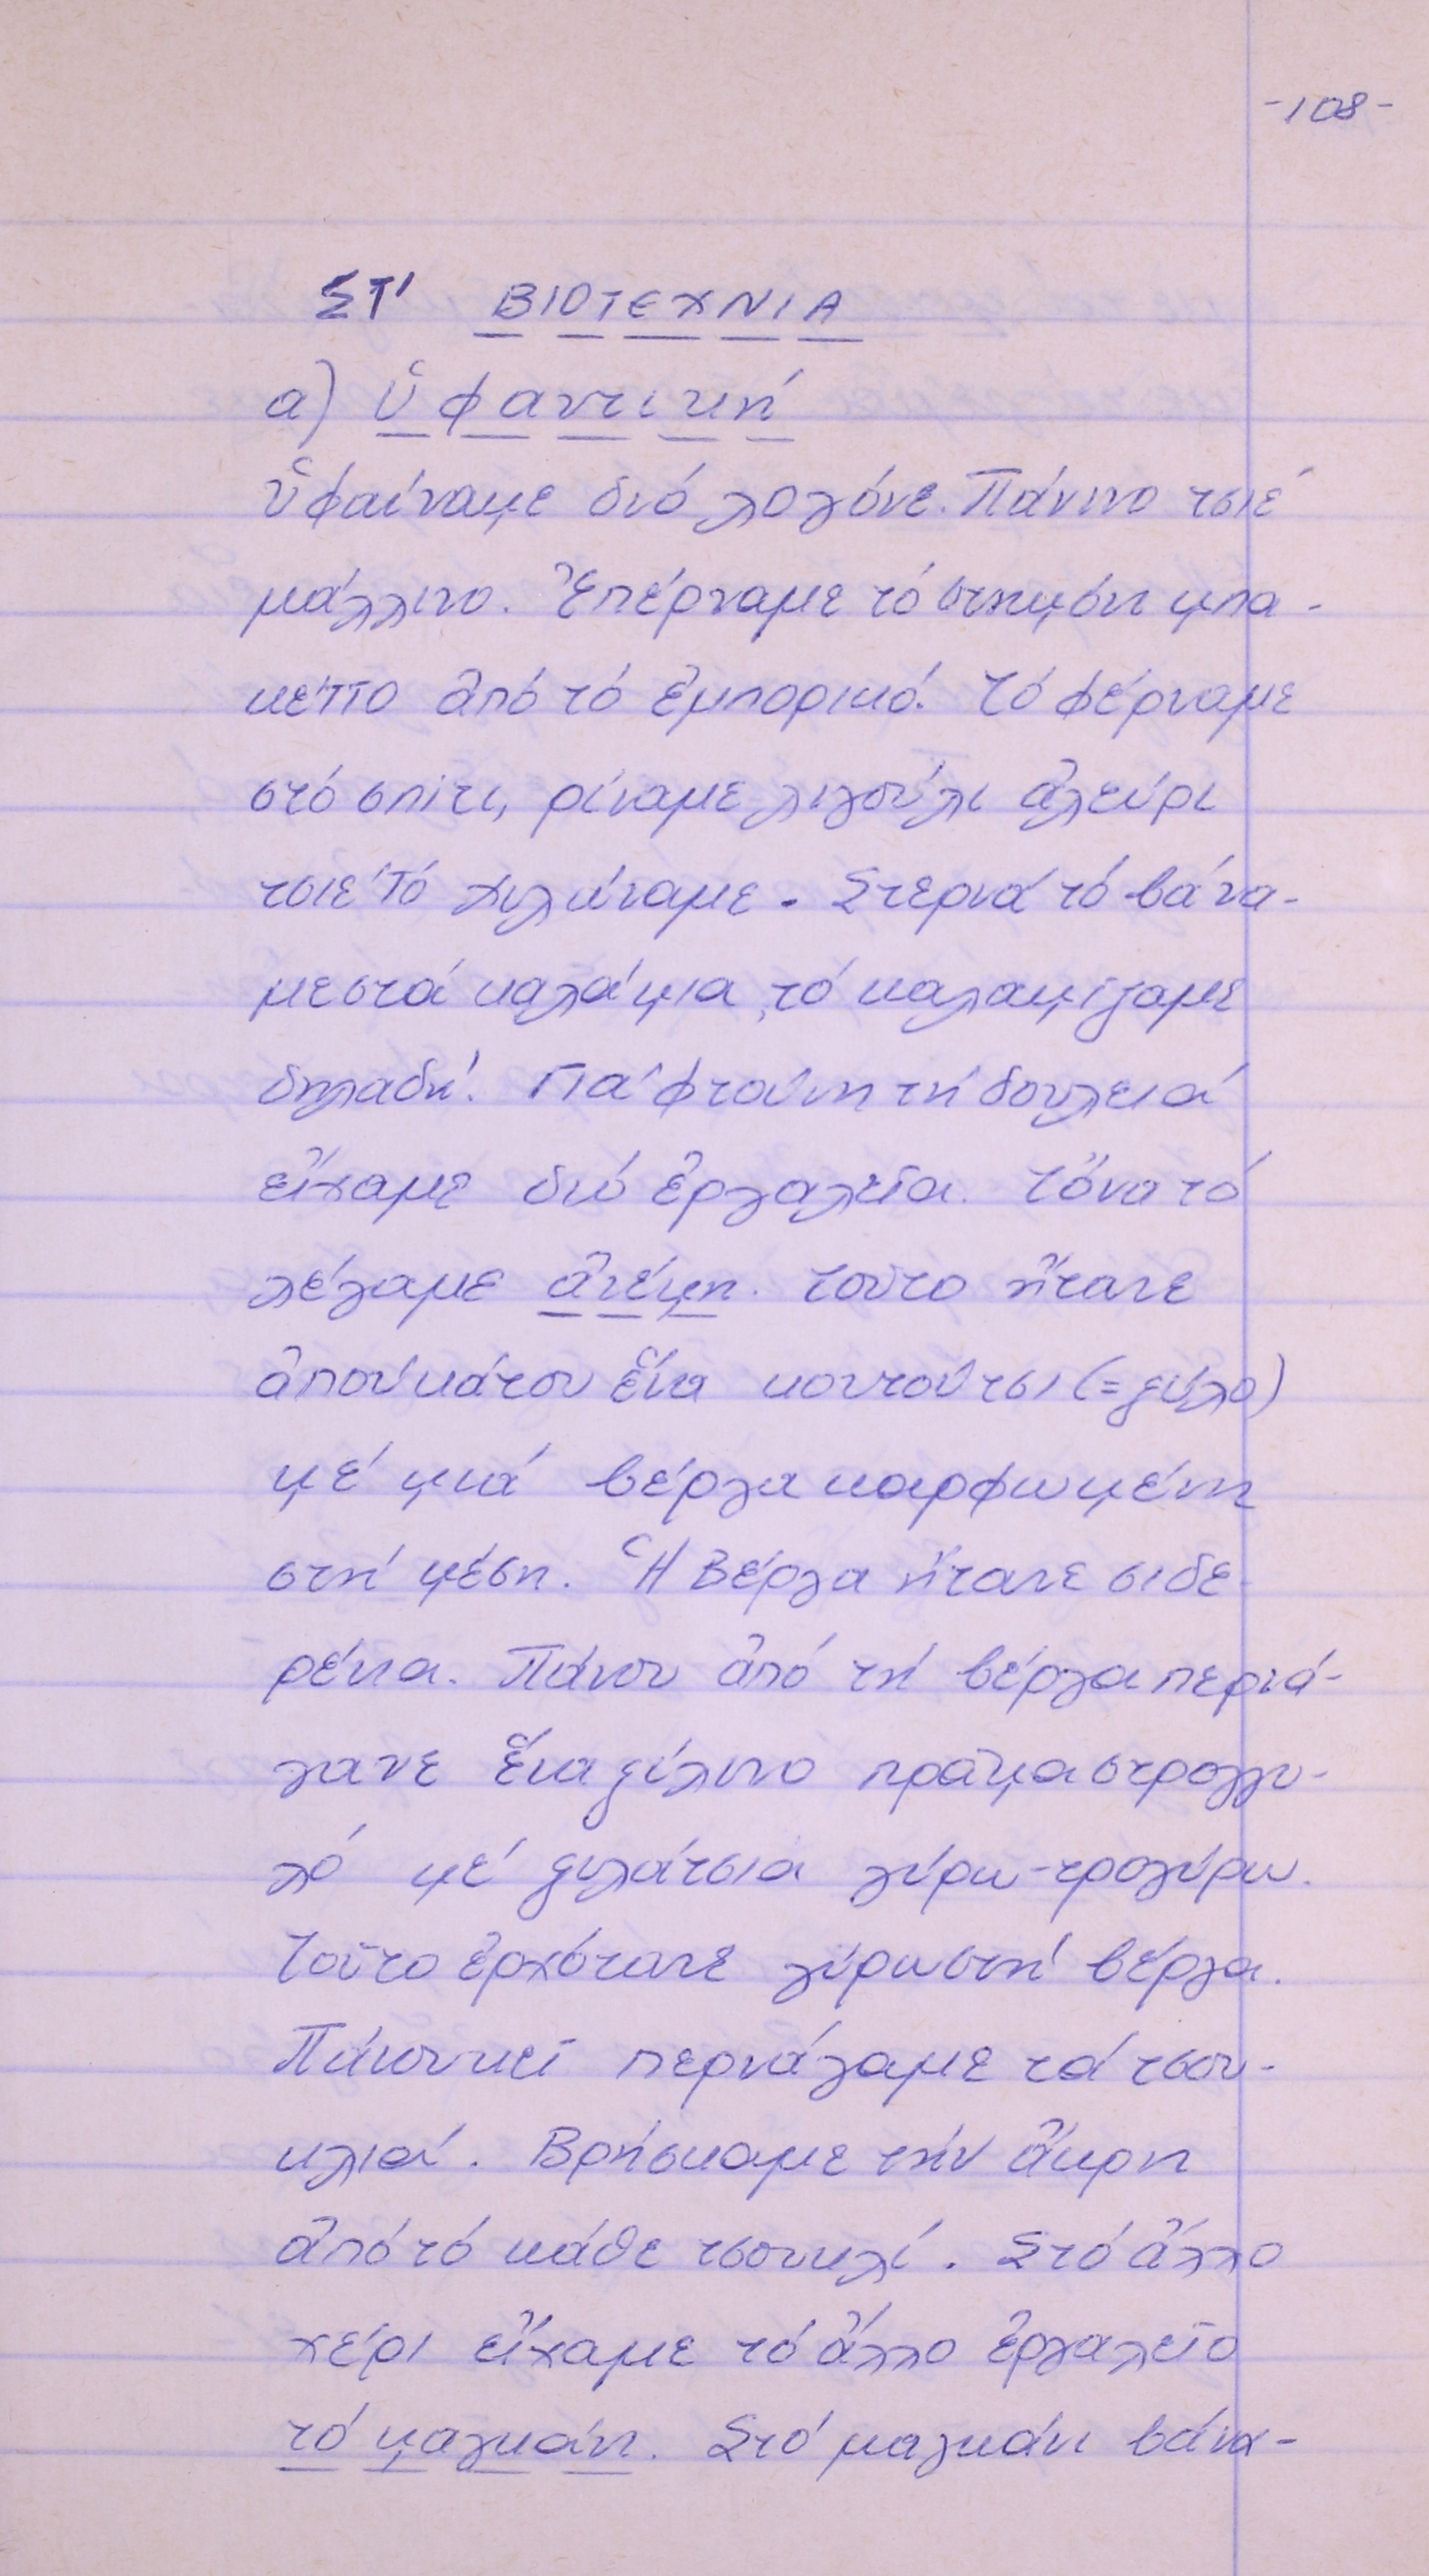 -108-
ΣΤ' ΒΙΟΤΕΧΝΙΑ
α) ὑφαντική
ὑφαίναμε διό λογόνε. Πάνινο τσιέ
μάλλινο. Ἐπέρναμε τό στημόνι μπα-
κέττο ἀπό τό ἐμπορικό. τό φέρναμε
στό σπίτι, ρίναμε λιγούλι ἀλεύρι
τσιέ τό χυλώναμε. Στερνά τό βάνα-
με στά καλάμια, τό καλαμίζαμε
δηλαδή. Γιά φτούνη τή δουλειά
εἴχαμε διό ἐργαλεῖα. τὄνα τό
λέγαμε ἀνέμη. τοῦτο ἤτανε
ἀπουκάτου ἕνα κουτούτσι (=ξύλο)
μέ μιά βέργα καρφωμένη
στή μέση. Ἡ βέργα ἤτανε σιδε-
ρένια. Πάνου ἀπό τή βέργα περνά-
γανε ἕνα ξύλινο πρᾶμα στρογγυ-
λό μέ ξυλάτσια γύρω-τρογύρω.
τοῦτο ἐρχότανε γύρω στή βέργα.
Πάνου κεῖ περνάγαμε τά τσου-
κλιά. Βρήσκαμε τήν ἄκρη
ἀπό τό κάθε τσουκλί. Στό ἄλλο
χέρι εἴχαμε τό ἄλλο ἐργαλεῖο
τό μαγκάνι. Στό μαγκάνι βάνα-